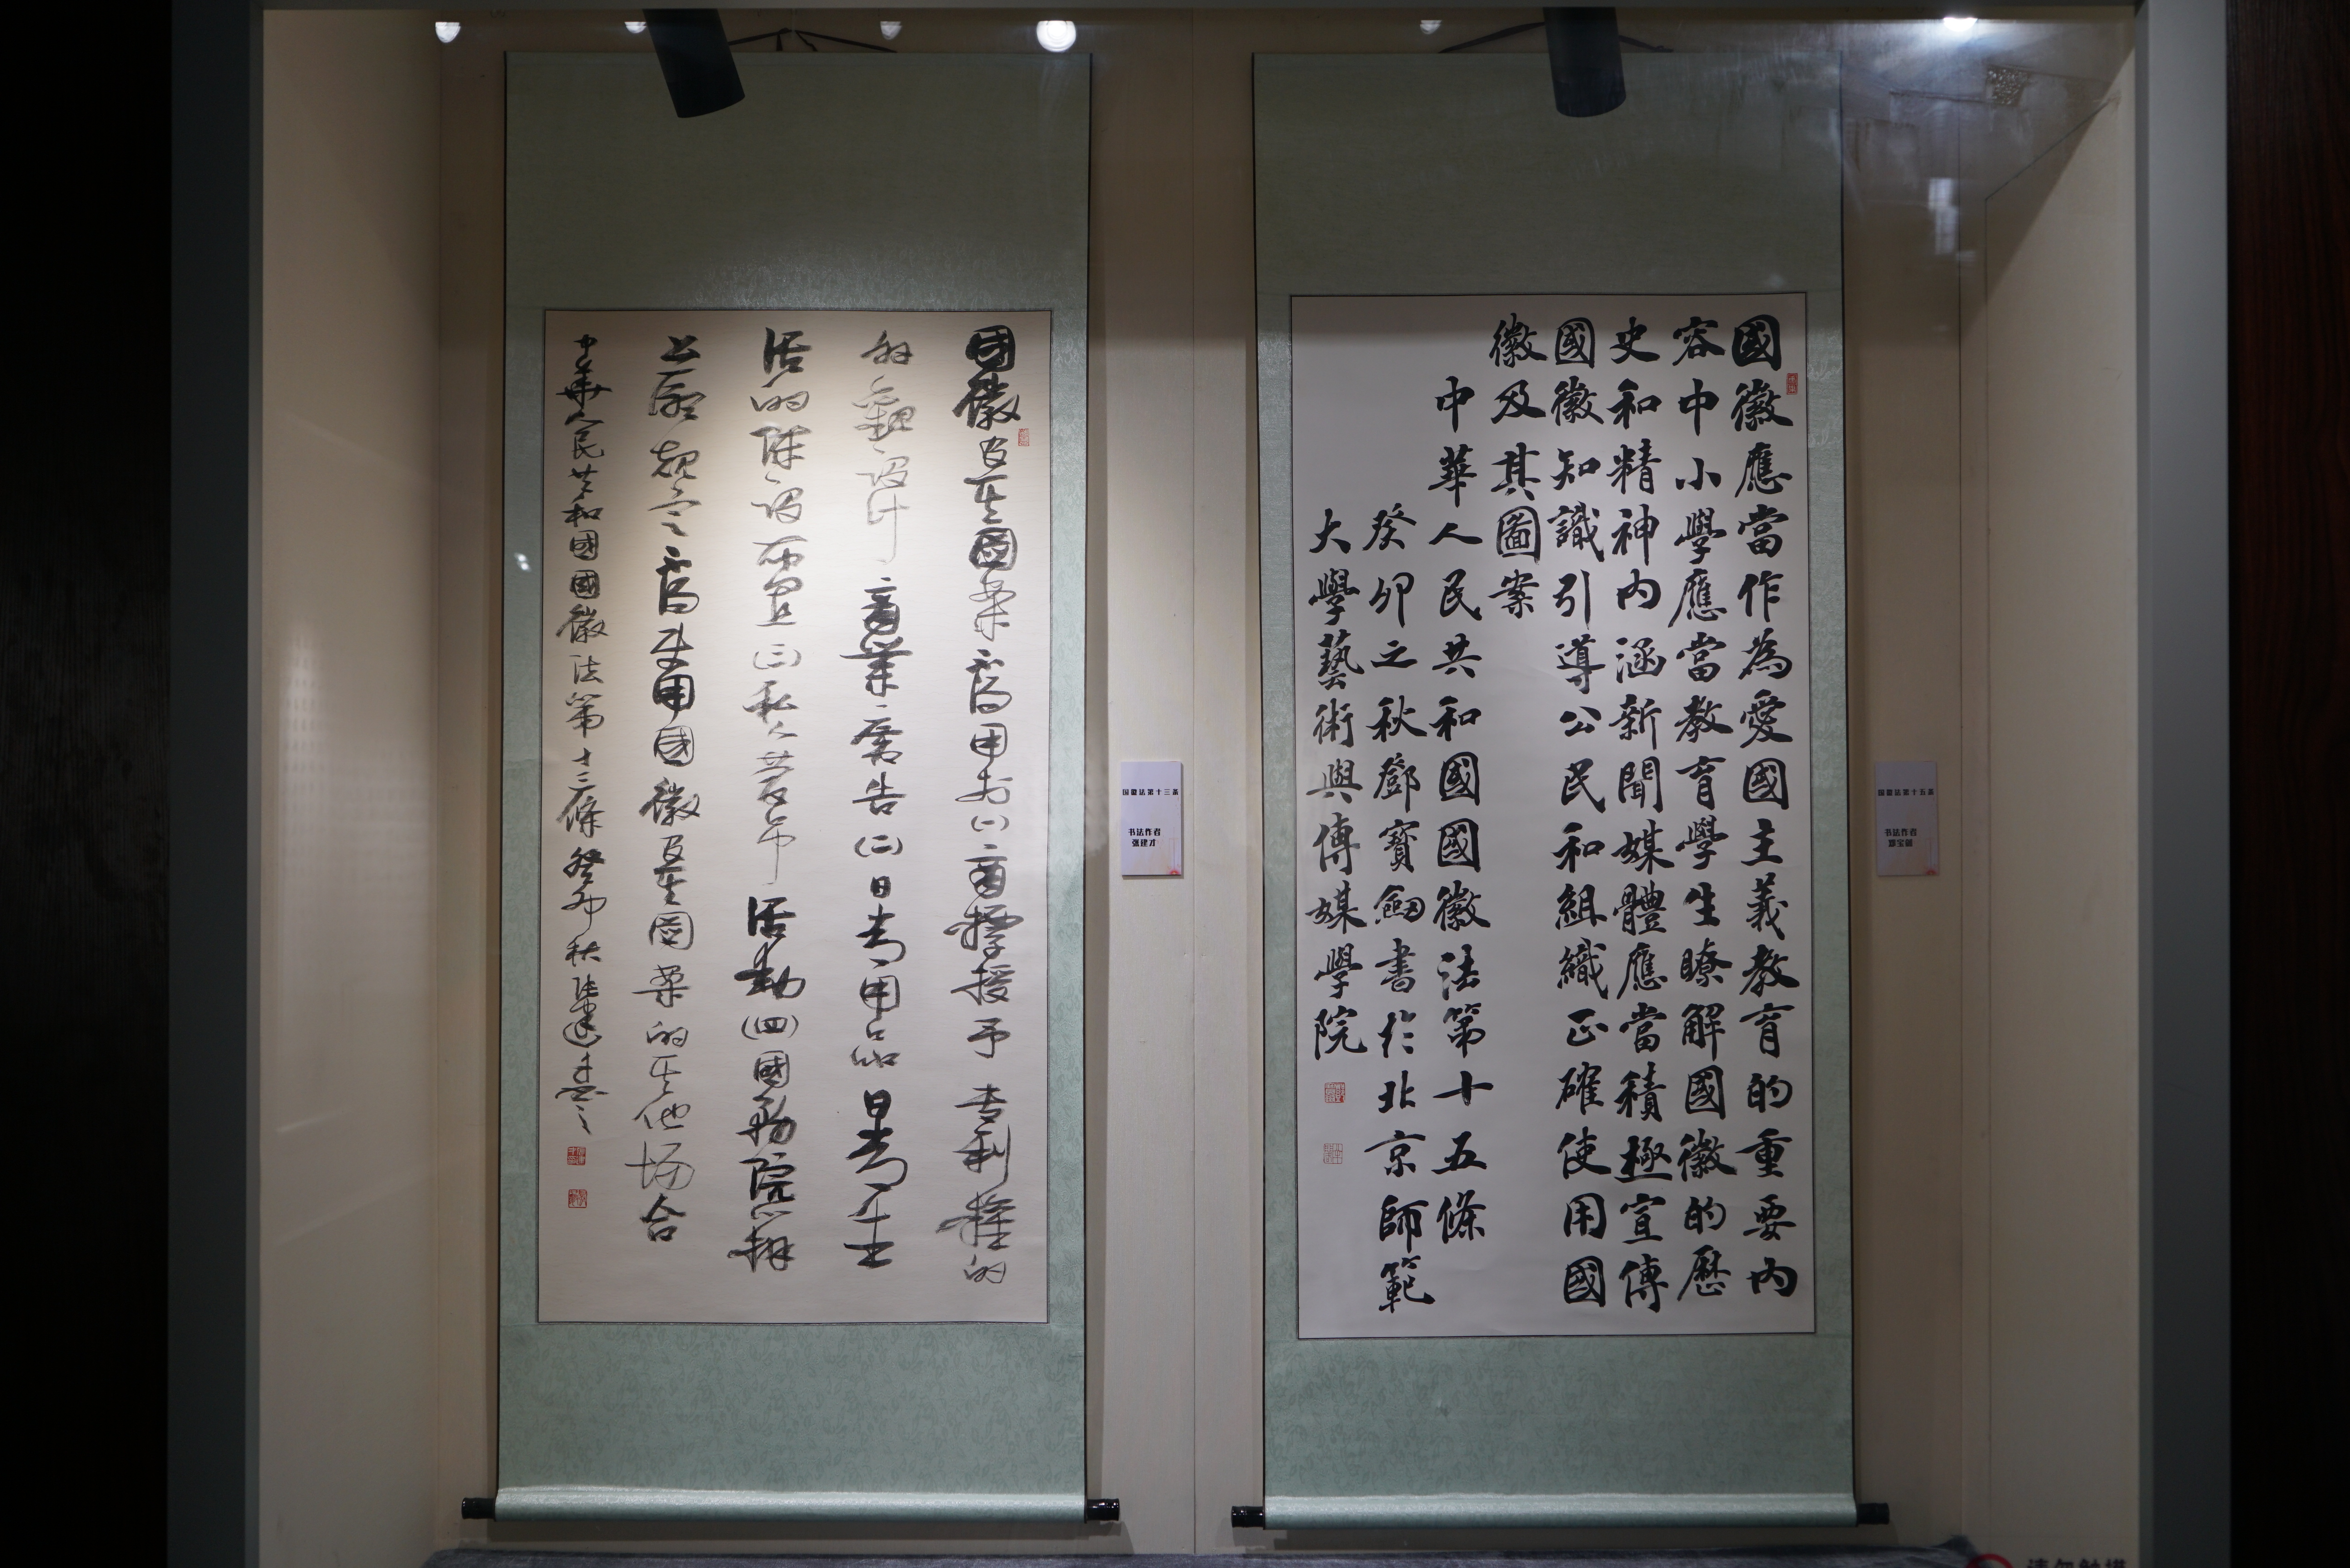 國徽及其圖案不得用於(一)商標授予專利權的
外觀設計商業廣告(二)日常用品日常生
活的陳設布置(三)私人慶弔活動(四)國務院辦
公廳規定不得使用國徽及其圖案的其他場合
中華人民共和國國徽法第十三條癸卯秋張建才書之
国徽法第十三条
书法作者
张建才
國徽應當作為愛國主義教育的重要内
容中小學應當教育學生瞭解國徽的歷
史和精神内涵新聞媒體應當積極宣傳
國徽知識引導公民和組織正確使用國
徽及其圖案
中華人民共和國國徽法第十五條
癸卯之秋鄧寶劍書於北京師範
大學藝術與傳媒學院
国徽法第十五条
书法作者
邓宝剑
请勿触摸